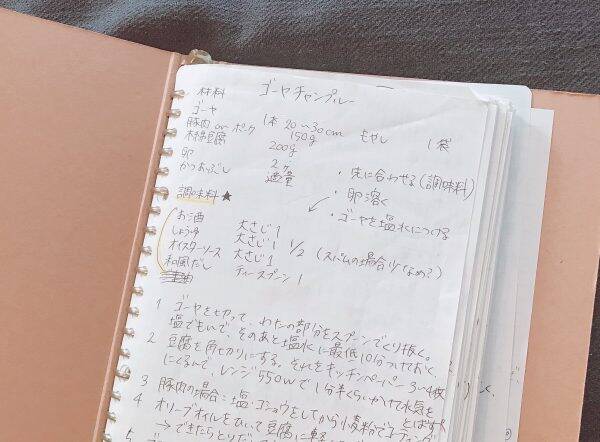 ゴーヤチャンプルー
材料
ゴーヤ 1本 20〜30cm もやし 1袋
豚肉 or ポーク 150g
木綿豆腐 200g
卵 2ヶ
かつおぶし 適量
・先に合わせる(調味料)
・卵溶く
・ゴーヤを塩水につける
調味料★
お酒 大さじ1
しょうゆ 大さじ1 1/2 (スパムの場合少なめ?)
オイスターソース 大さじ1
和風だし ティースプーン1
1 ゴーヤを切って、わたの部分をスプーンでくり抜く。
塩でもんで、そのあと塩水に最低10分つけておく。
2 豆腐を角切りにする。それをキッチンペーパー3〜4枚
にくるんで、レンジ550Wで1分半くらいかけて水気を
とばす
3 豚肉の場合:塩・コショウをしてから小麦粉で
4 オリーブオイルをひいて豆腐に軽く
→できたら
5